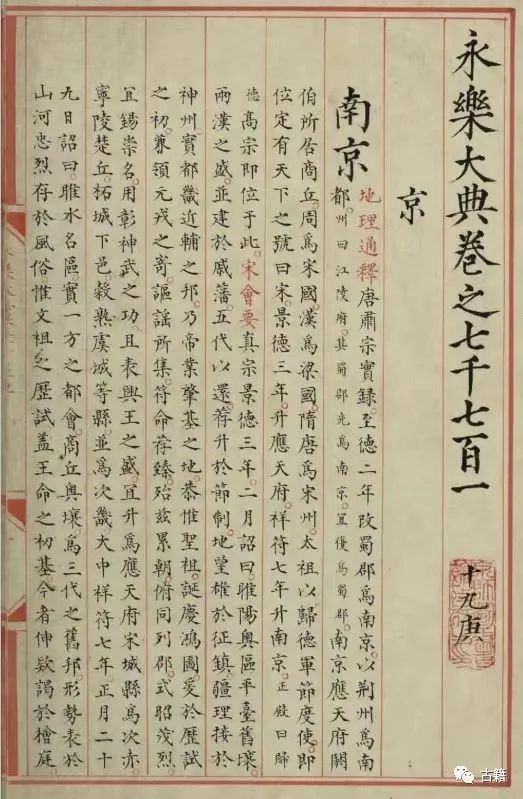 永樂大典卷之七千七百一
十九庚
京
南京
地理通釋唐肅宗實錄至德二年改蜀郡爲南京。以荆州爲南
都。州曰江陵府。其蜀郡先爲南京。宜復爲蜀郡。南京應天府閼
伯所居商丘。周爲宋國。漢爲梁國。隋唐爲宋州。太祖以歸德軍節度使。即
位定有天下之號曰宋。景德三年。升應天府。祥符七年升南京。正殿曰歸
德。高宗即位于此。宋會要真宗景德三年二月詔曰。睢陽奧區。平臺舊壤。
兩漢之盛。並建於戚藩。五代以還。荐升於節制。地望雄於征鎮。疆理接於
神州。實都畿近輔之邦。乃帝業肇基之地。恭惟聖祖。誕慶鴻圖。爰於歷試
之初。兼領元戎之寄。謳謡所集。符命荐臻。殆兹累朝。俯同列郡。式昭茂烈。
宜錫崇名。用彰神武之功。且表興王之盛。宜升爲應天府。宋城縣爲次赤。
寧陵楚丘。柘城下邑。穀熟虞城等縣。並爲次畿。大中祥符七年。正月二十
九日詔曰。睢水名區。實一方之都會。商丘奧壤。爲三代之舊邦。形勢表於
山河。忠烈存於風俗。惟文祖之歷試。盖王命之初基。今者伸款謁於檜庭。
古籍